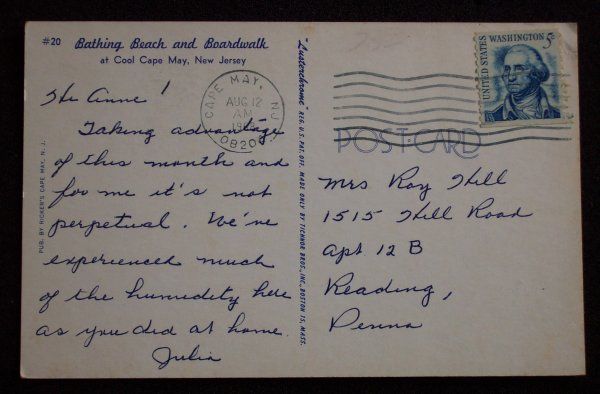 #20 Bathing Beach and Boardwalk
at Cool Cape May, New Jersey
Hi Anne!
Taking advantage
of this month and
for me it's not
perpetual. We've
experienced much
of the humidity here
as you did at home.
Julia
PUB. BY RICKER'S CAPE MAY, N. J.
"Lusterchrome" REG. U.S. PAT. OFF. MADE ONLY BY TICHNOR BROS., INC., BOSTON 15, MASS.
CAPE MAY, NJ
AUG 12
AM
08204
UNITED STATES
WASHINGTON 5c
POST CARD
Mrs Roy Hill
1515 Hill Road
Apt 12 B
Reading,
Penna